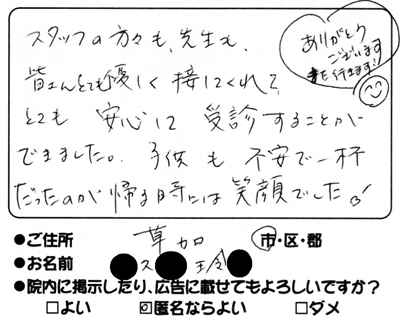 スタッフの方々も、先生も、
皆さんとても優しく接してくれて、
とても安心して受診することが
できました。子供も不安で一杯
だったのが帰る時には笑顔でした!
ありがとう
ございます
また行きます!
●ご住所 草加 市・区・郡
●お名前 ●ス●玲●
●院内に掲示したり、広告に載せてもよろしいですか?
□よい ☑匿名ならよい □ダメ